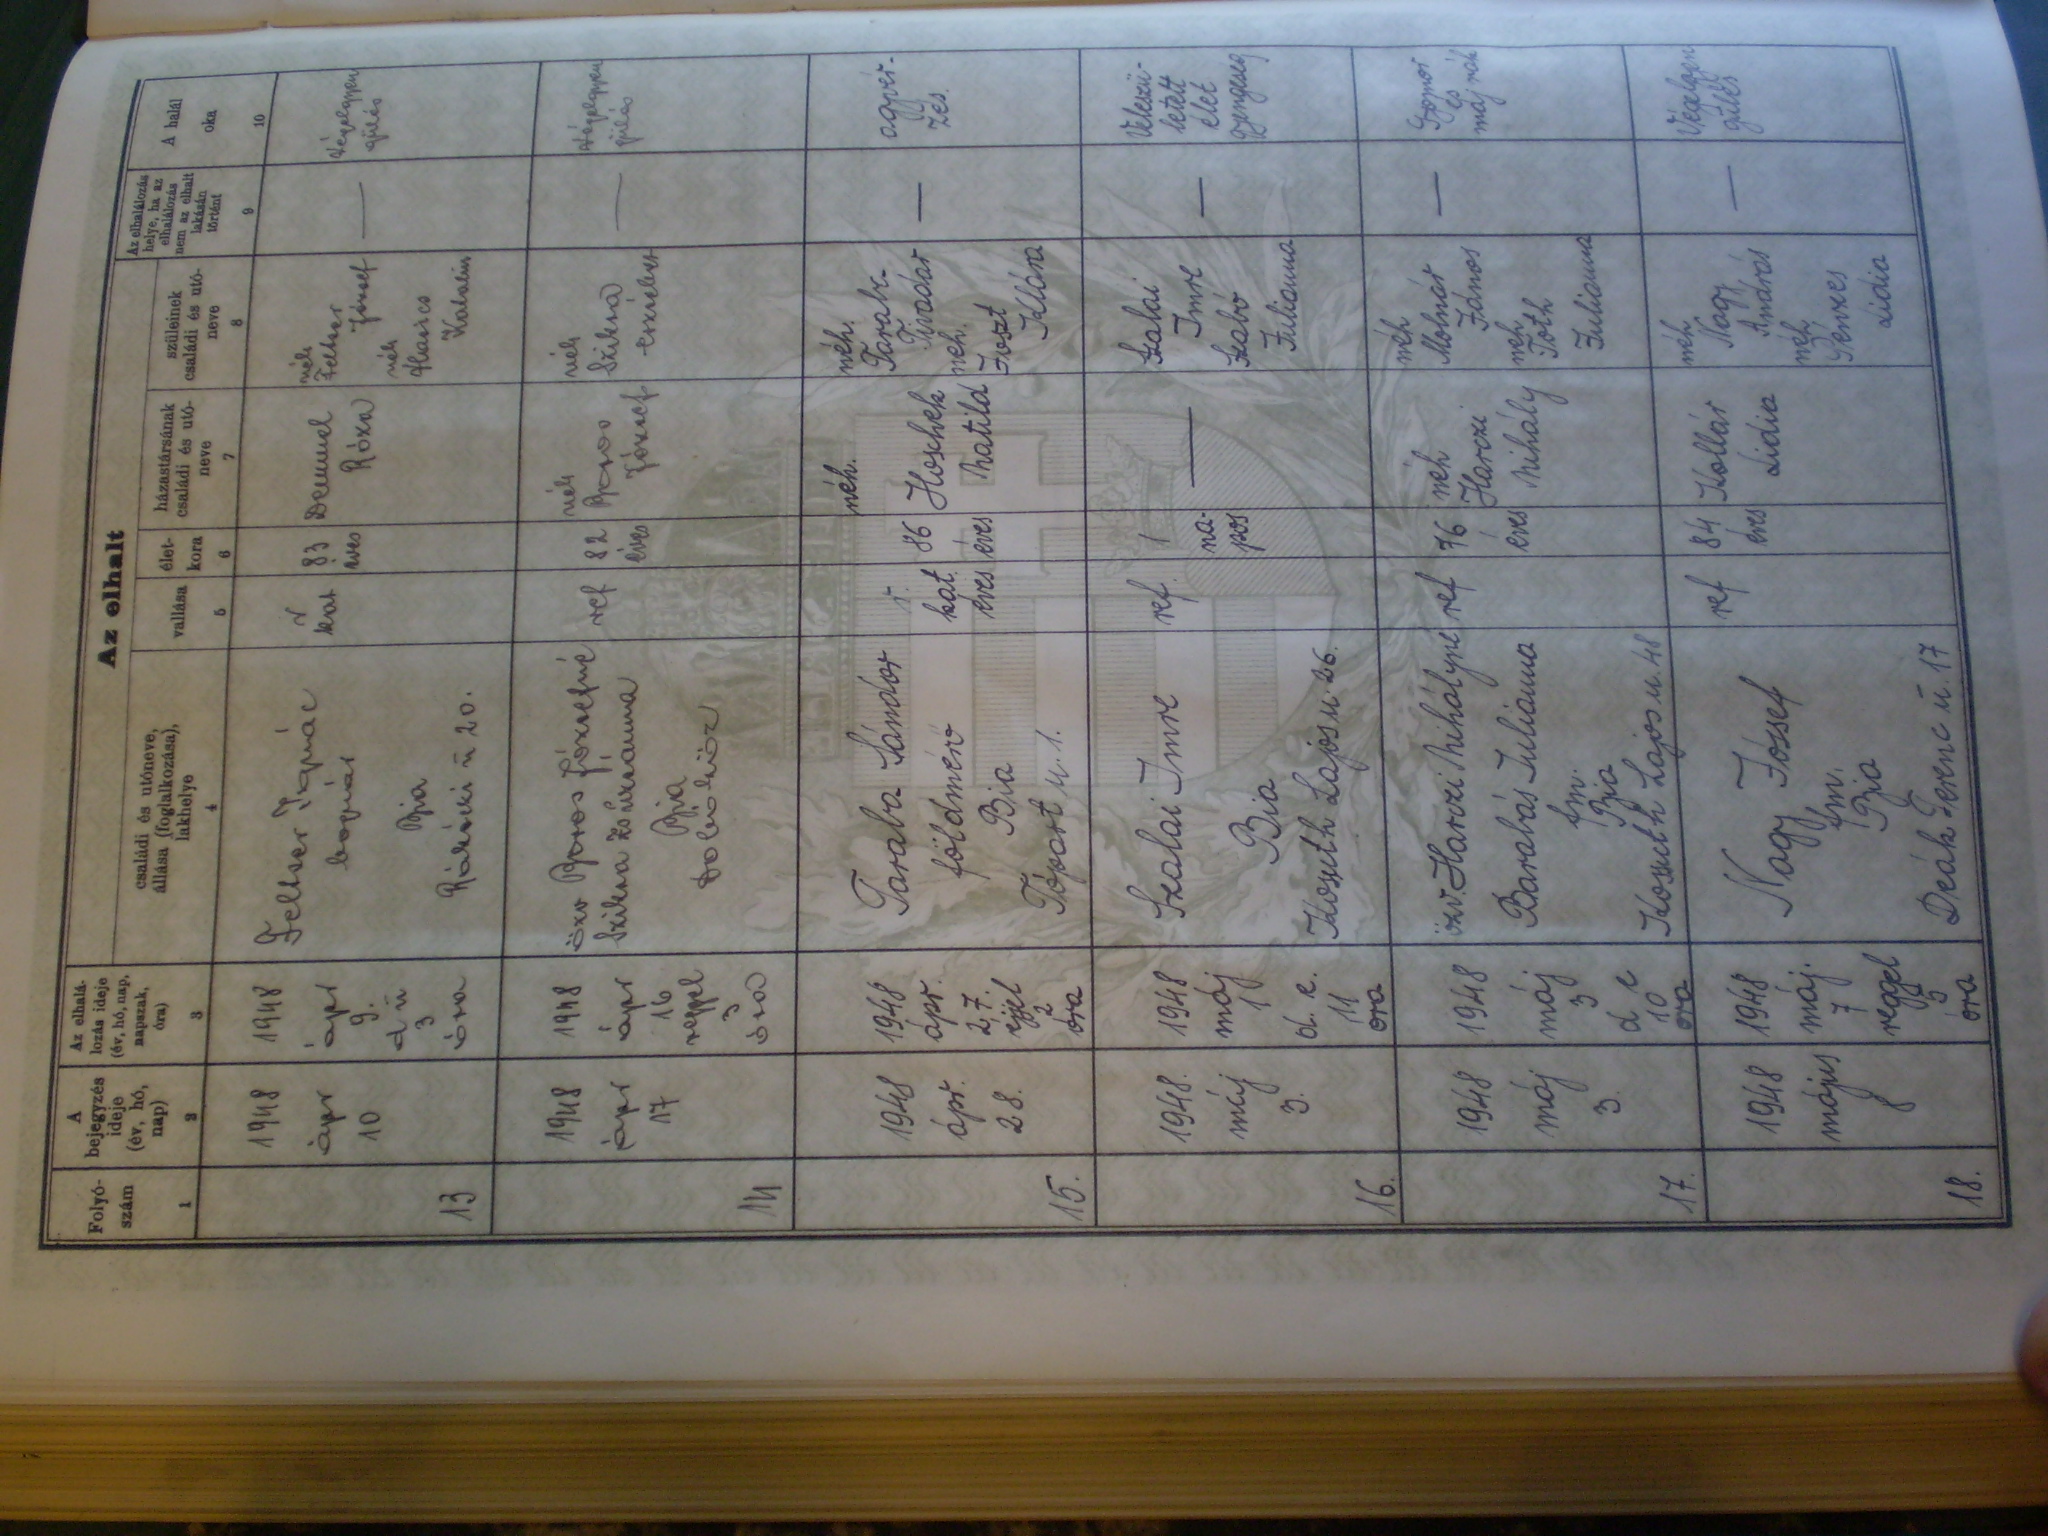 Az elhalt
Folyó-
szám
1
A
bejegyzés
ideje
(év, hó,
nap)
2
Az elhalá-
lozás ideje
(év, hó, nap,
napszak,
óra)
3
családi és utóneve,
állása (foglalkozása),
lakhelye
4
vallása
5
élet-
kora
6
házastársának
családi és utó-
neve
7
szüleinek
családi és utó-
neve
8
Az elhalálozás
helye, ha az
elhalálozás
nem az elhalt
lakásán
történt
9
A halál
oka
10
13
1948
ápr
10
1948
ápr
9.
d u
3
óra
Feltser Ignác
bognár
Bia
Rákóczi u 20.
r
kat
83
éves
Demmel
Róza
néh
Feltser
József
néh
Katalin
—
Végelgyen
gülés
14
1948
ápr
17
1948
ápr
16
reggel
3
óra
özv Boros Józsefné
Szikra Zsuzsanna
Bia
ref
82
éves
néh
Boros
József
néh
Szikra
—
Végelgyen
gülés
15.
1948
ápr.
28.
1948
ápr.
27.
éjjel
2
óra
Taraba Sándor
földmérő
Bia
Tópart u. 1.
r.
kat.
éves
86
éves
néh.
Hoschek
Matild
néh.
Taraba
Tivadar
neh.
Joszt
Klára
—
agyvér-
zés.
16.
1948.
máj
3.
1948
máj
1
d. e.
11
óra
Szalai Imre
Bia
Kossuth Lajos u. 26.
ref.
1
na-
pos
—
Szalai
Imre
Szabó
Julianna
—
Veleszü-
letett
élet
gyengeség
17.
1948
máj
3.
1948
máj
3
d e
10
óra
özv. Harczi Mihályné
Barabás Julianna
fm.
Bia
Kossuth Lajos u. 48
ref
76
éves
néh
Harczi
Mihály
néh
Molnár
János
neh
Tóth
Julianna
—
Gyomor
és
máj rák
18.
1948
május
8
1948
máj.
7
reggel
5
óra
Nagy József
fm.
Bia
Deák Ferenc u. 17
ref
84
éves
Kollár
Lidia
néh
Nagy
András
néh
Penzes
Lidia
—
Végelgyen
gülés